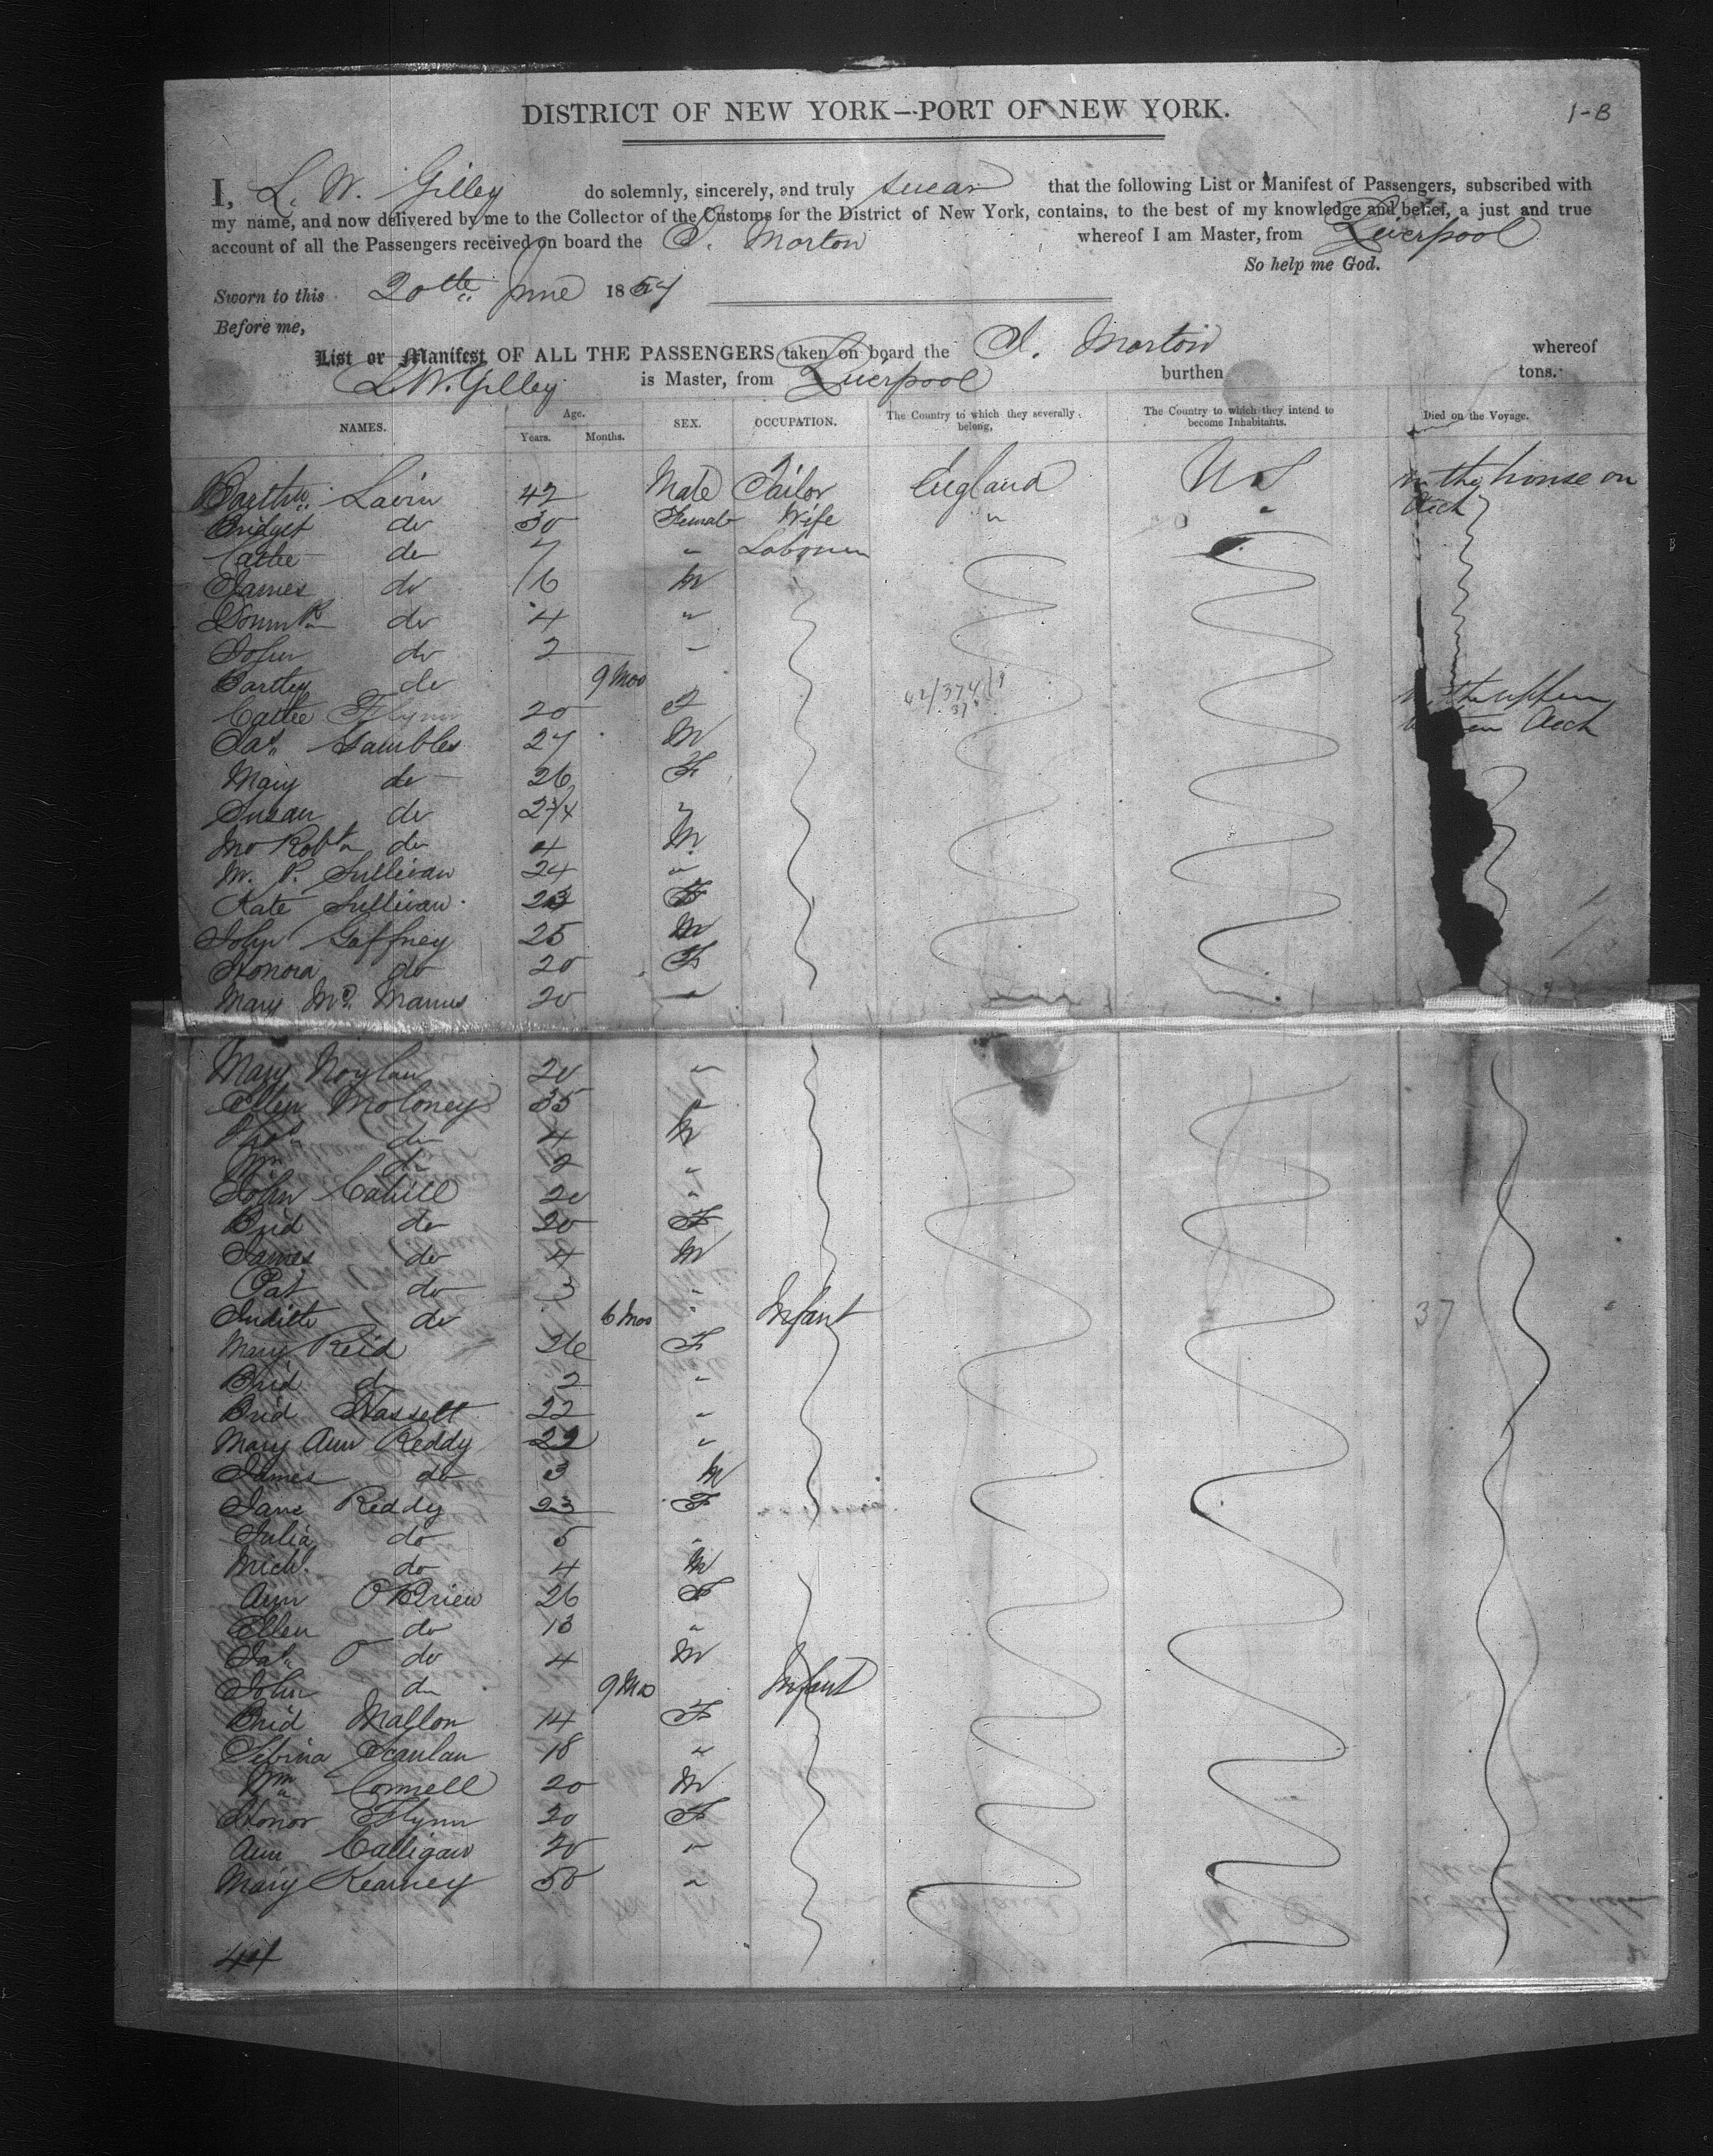 DISTRICT OF NEW YORK—PORT OF NEW YORK.
1-B
I, L. W. Gilley do solemnly, sincerely, and truly swear that the following List or Manifest of Passengers, subscribed with
my name, and now delivered by me to the Collector of the Customs for the District of New York, contains, to the best of my knowledge and belief, a just and true
account of all the Passengers received on board the I. Morton whereof I am Master, from Liverpool
So help me God.
Sworn to this 20th June 1857
Before me,
List or Manifest OF ALL THE PASSENGERS taken on board the I. Morton whereof
L. W. Gilley is Master, from Liverpool burthen tons.
NAMES. Age. Years. Months. SEX. OCCUPATION. The Country to which they severally belong, The Country to which they intend to become Inhabitants. Died on the Voyage.
Lavin 42 Male Tailor England U S in the house on
Bridget do 30 Female Wife " " deck
Cathe do 7 "
James do 6 M
do 4 "
John do 2 "
Bartley do 9 Mos
Cathe Flynn 20 F in the upper
Jas. Gambles 27 M deck
Mary do 26 F
Susan do 2 "
Robt do 4 M
M. P. Sullivan 24 "
Kate Sullivan 23 F
John Gaffney 25 M
Honora do 20 F
Mary Mc. Manus 20 "
Mary Noylan 20 "
Ellen Moloney 35 "
do 4 M
Wm do 2 "
John Cahill 20 "
Brid do 20 F
James do 4 M
Pat do 3 "
Judith do 6 Mos " Infant 37
Mary Reid 26 F
Brid do 2 "
Brid Hassett 22 "
Mary Ann Reddy 22 "
James do 3 M
Jane Reddy 23 F
Julia do 5 "
Michl. do 4 M
Ann O'Brien 26 F
Ellen do 13 "
do 4 M
John do 9 Mos " Infant
Brid Mallon 14 F
Scanlan 18 "
Wm Connell 20 M
Honor Flynn 20 F
Ann Calligan 20 "
Mary Kearney 50 "
44